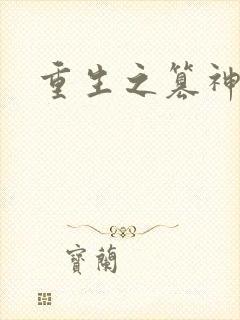 重生之篡神
寶蘭